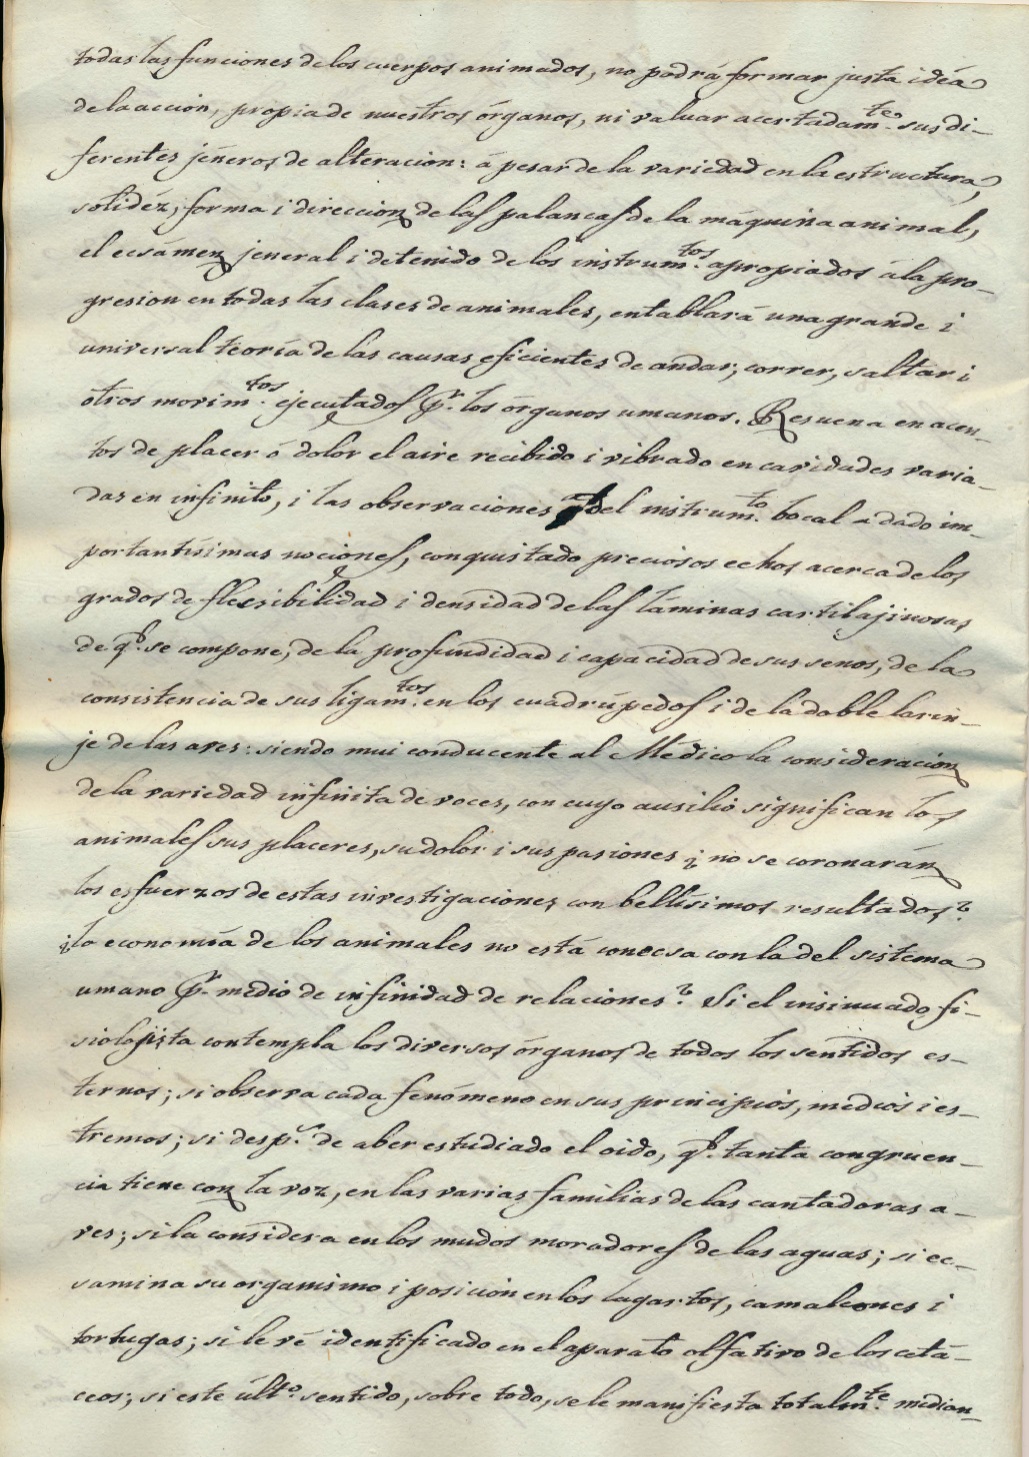 todas las funciones de los cuerpos animados, no podrá formar justa idéa
de la accion, propia de nuestros órganos, ni valuar acertadam.te sus di-
ferentes jéneros de alteracion: á pesar de la variedad en la estructura,
solidéz, forma i direccion de las palancas de la máquina animal,
el ecsámen jeneral i detenido de los instrum.tos apropiados á la pro-
gresion en todas las clases de animales, entablará una grande i
universal teoría de las causas eficientes de andar, correr, saltar i
otros movim.tos ejecutados p.r los órganos umanos. Resuena en acen-
tos de placer ó dolor el aire recibido i vibrado en cavidades varia-
das en infinito, i las observaciones del instrum.to bocal a dado im-
portantísimas nociones, conquistado preciosos echos acerca de los
grados de flecsibilidad i densidad de las láminas cartilajinosas
de q.e se compone, de la profundidad i capacidad de sus senos, de la
consistencia de sus ligam.tos en los cuadrúpedos i de la doble larin-
je de las aves: siendo mui conducente al Médico la consideracion
de la variedad infinita de voces, con cuyo ausilio significan los
animales sus placeres, su dolor i sus pasiones ¿no se coronarán
los esfuerzos de estas investigaciones con bellísimos resultados?
¿la economía de los animales no está conecsa con la del sistema
umano p.r medio de infinidad de relaciones? Si el insinuado fi-
siolojista contempla los diversos órganos de todos los sentidos es-
ternos; si observa cada fenómeno en sus principios, medios i es-
tremos; si desp.s de aber estudiado el oido, q.e tanta congruen-
cia tiene con la voz, en las varias familias de las cantadoras a-
ves; si la considera en los mudos moradores de las aguas; si ec-
samina su organismo i posicion en los lagartos, camaleones i
tortugas; si le vé identificado en el aparato olfativo de los cetá-
ceos; si este últ.o sentido, sobre todo, se le manifiesta totalm.te median-